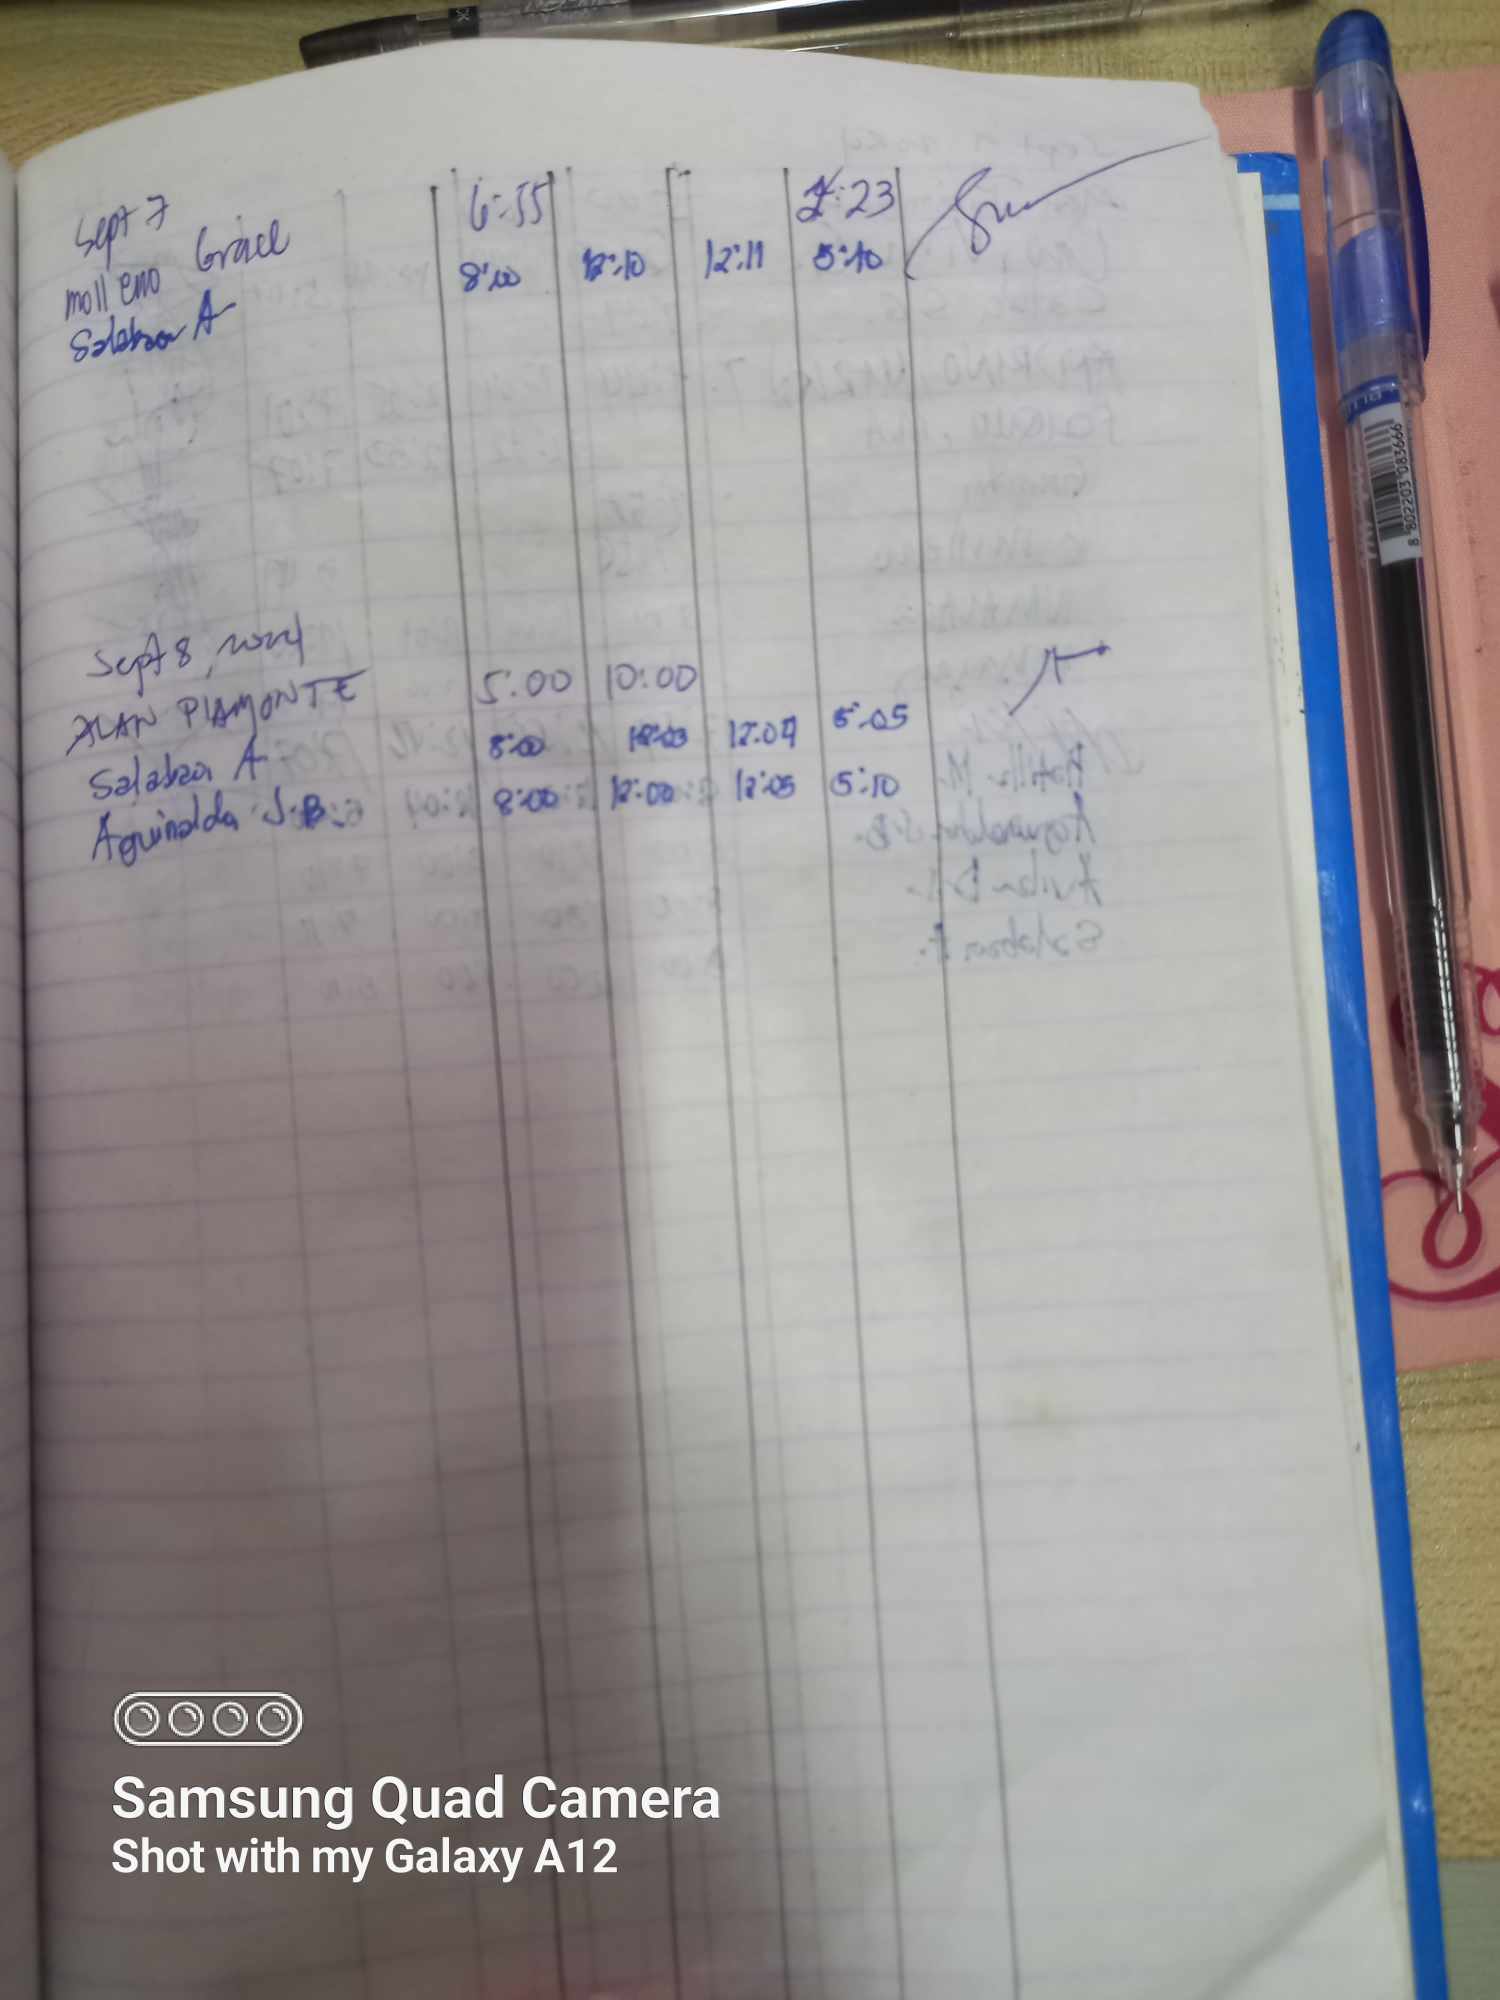 Sept 7
Molleno Grace 6:55 2:23
Salabsa A 8:00 12:10 12:11 5:10
Sept 8, 2024
ALAN PIAMONTE 5:00 10:00
Salabsa A 8:00 12:03 12:04 5:05
Aguinalda J.B. 8:00 12:00 12:05 5:10
8 802203 083666
Samsung Quad Camera
Shot with my Galaxy A12